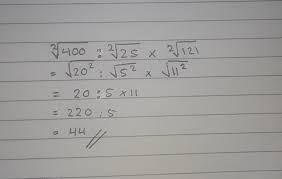 ²√400 : ²√25 × ²√121
= √20² : √5² × √11²
= 20 : 5 × 11
= 220 : 5
= 44